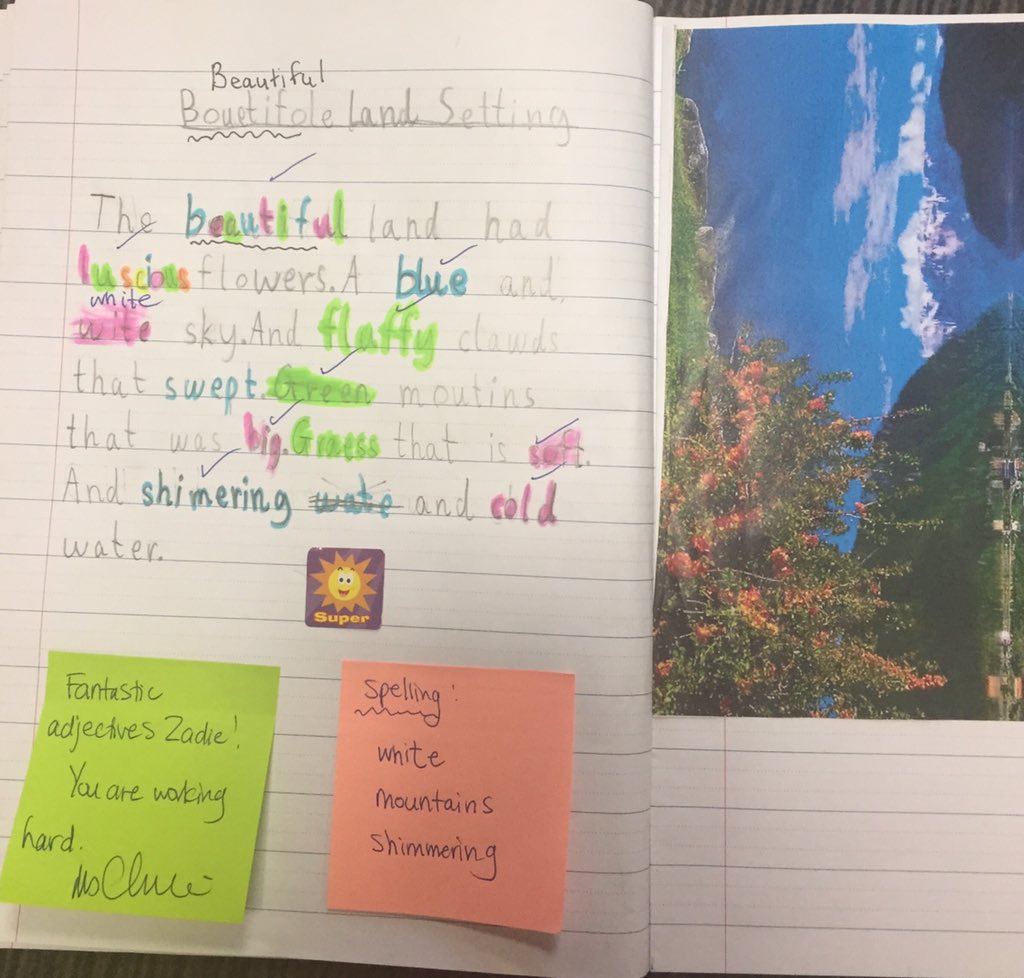 Beautiful
Bouetifole Land Setting
The beautiful land had
luscious flowers. A blue and
white
wite sky. And flaffy clawds
that swept. Green moutins
that was big. Graess that is soft.
And shimering wate and cold
water.
Super
Fantastic
adjectives Zadie!
You are working
hard.
Spelling:
white
mountains
shimmering